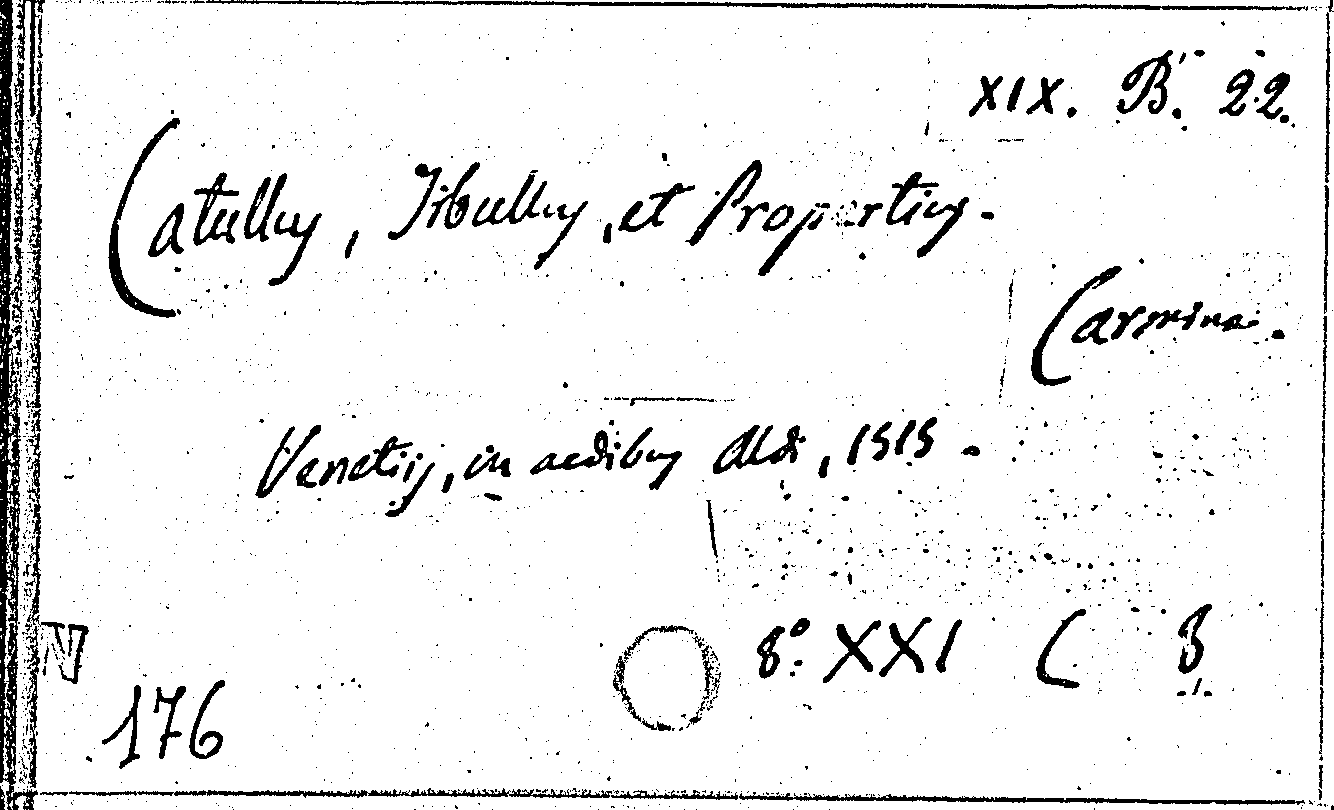 XIX. B. 22.
Catullus, Tibullus, et Propertius.
Carmina.
Venetijs, in aedibus Aldi, 1515.
8º. XXI C 8
N
176